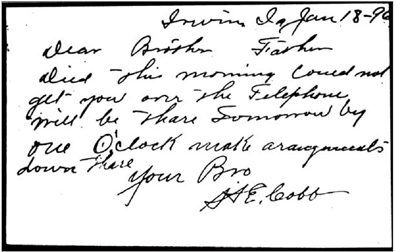 Irwin Ia Jan 18-96
Dear Brother Father
Died this morning Could not
get you over the Telephone
will be thare Tomorrow by
one O'clock make arangments
down thare
Your Bro
E. Cobb